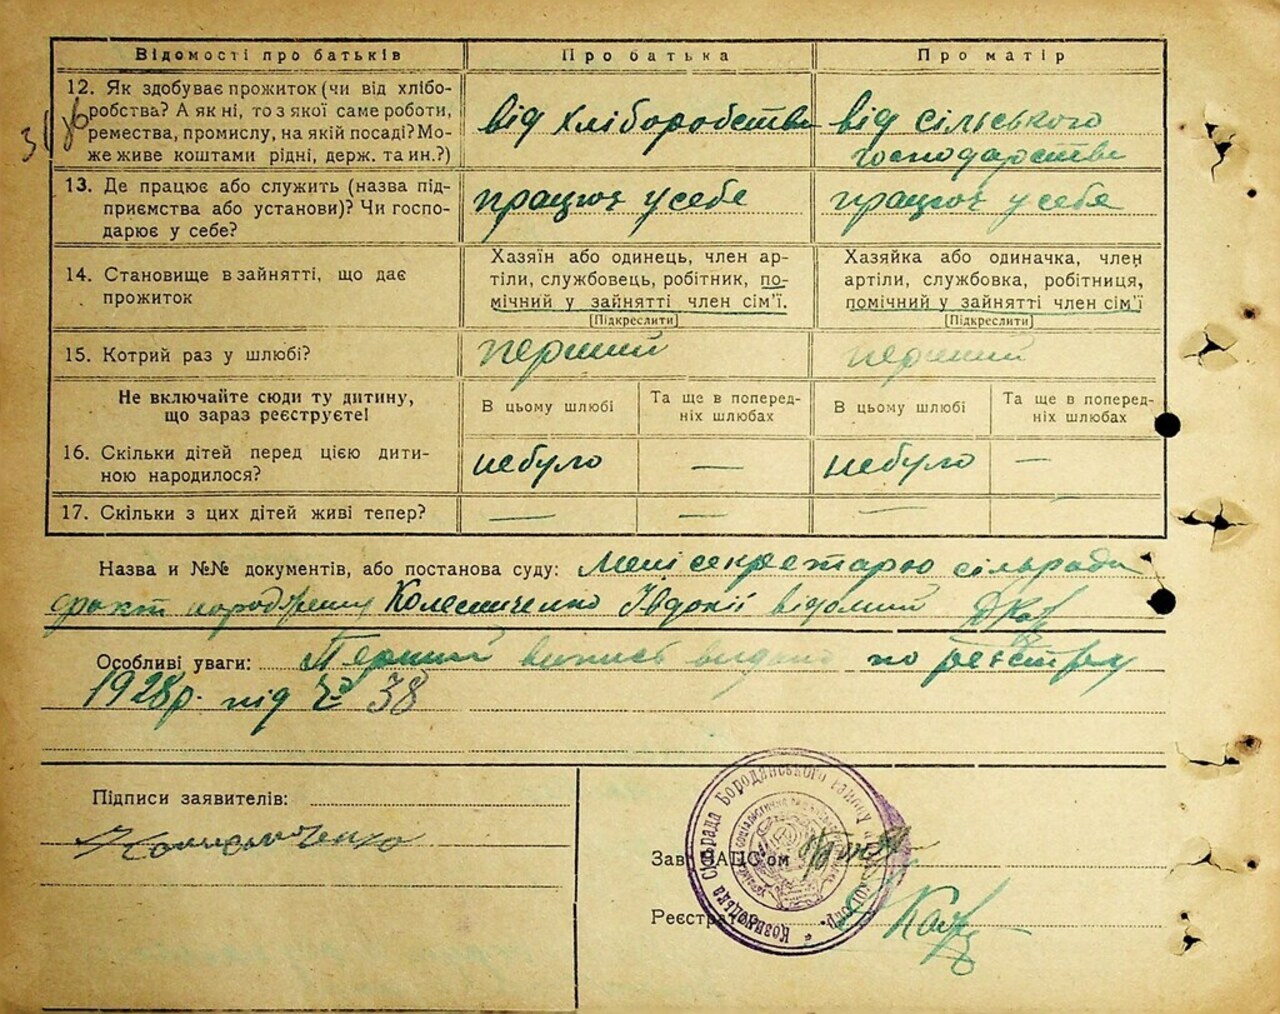 Відомості про батьків
Про батька
Про матір
12. Як здобуває прожиток (чи від хлібо-
робства? А як ні, то з якої саме роботи,
ремества, промислу, на якій посаді? Мо-
же живе коштами рідні, держ. та ин.?)
від хліборобства
від сільського
господарства
13. Де працює або служить (назва під-
приємства або установи)? Чи госпо-
дарює у себе?
працює у себе
працює у себе
14. Становище в зайнятті, що дає
прожиток
Хазяїн або одинець, член ар-
тіли, службовець, робітник, по-
мічний у зайнятті член сім'ї.
[Підкреслити]
Хазяйка або одиначка, член
артіли, службовка, робітниця,
помічний у зайнятті член сім'ї
[Підкреслити]
15. Котрий раз у шлюбі?
перший
перший
Не включайте сюди ту дитину,
що зараз реєструєте!
В цьому шлюбі
Та ще в поперед-
ніх шлюбах
В цьому шлюбі
Та ще в поперед-
ніх шлюбах
16. Скільки дітей перед цією дити-
ною народилося?
небуло
—
небуло
—
17. Скільки з цих дітей живі тепер?
—
—
—
Назва и №№ документів, або постанова суду: Мені секретарю сільради
факт народження Колесниченко Івдокії відомий
Особливі уваги: Перший випис видано по реєстру
1928р. під № 38
Підписи заявителів:
Зав. ЗАЦС'ом
Реєстратор
сільрада Бородянського району